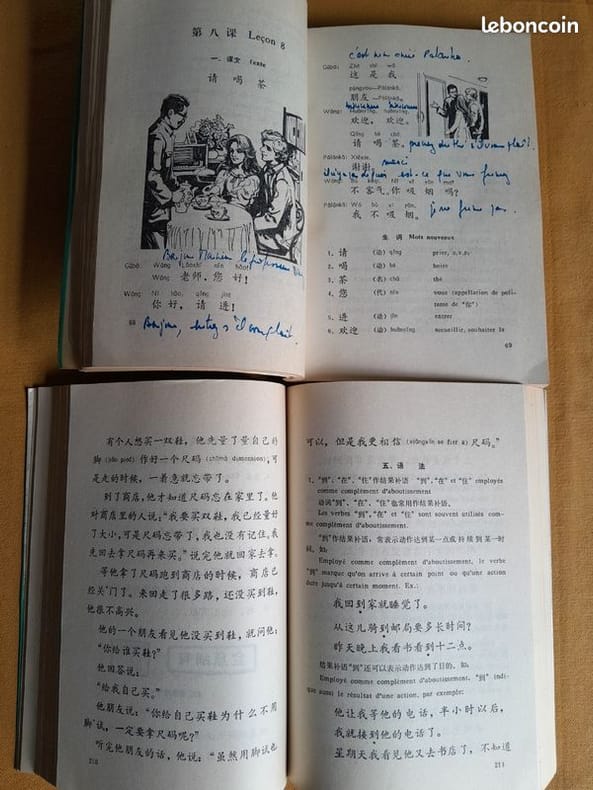 leboncoin
第八课 Leçon 8
一、课文 Texte
请喝茶
Gǔbō: Wáng Lǎoshī nín hǎo!
Wáng 老师，您好！
Wáng: Nǐ hǎo, qǐng jìn!
你好，请进！
68
Gǔbō: Zhè shì wǒ
这是我
péngyou—Pàlánkǎ.
朋友—Pàlánkǎ.
Wáng: Huānyíng, huānyíng.
欢迎，欢迎。
Qǐng hē chá.
请喝茶。
Pàlánkǎ: Xièxie.
谢谢。
merci
不客气。你吸烟吗？
Pàlánkǎ: Wǒ bù xī yān.
我不吸烟。
生词 Mots nouveaux
1. 请 (动) qǐng prier, s.v.p.
2. 喝 (动) hē boire
3. 茶 (名) chá thé
4. 您 (代) nín vous (appellation de poli-
tesse de "你")
5. 进 (动) jìn entrer
6. 欢迎 (动) huānyíng accueillir, souhaiter la
69
有个人想买一双鞋，他先量了量自己的
脚 (jiǎo pied) 作好一个尺码 (chǐmǎ dimension)，可
是走的时候，一着急就忘带了。
到了商店，他才知道尺码忘在家里了。他
对商店里的人说：“我要买双鞋，我已经量好
了大小，可是尺码忘带了，我也没有记住。我
先回去拿尺码再来买。”说完他就回家去拿。
等他拿了尺码跑到商店的时候，商店已
经关门了。来回走了很多路，还没买到鞋，
他很不高兴。
他的一个朋友看见他没买到鞋，就问他：
“你给谁买鞋？”
他回答说：
“给我自己买。”
他朋友说：“你给自己买鞋为什么不用
脚试，一定要拿尺码呢？”
听完他朋友的话，他说：“虽然用脚试也
210
可以，但是我更相信 (xiāngxìn se fier à) 尺码。”
五、语法
1. “到”、“在”、“住”作结果补语 "到", "在" et "住" employés
comme complément d'aboutissement
动词“到”、“在”、“住”也常用作结果补语。
Les verbes "到", "在" et "住" sont souvent utilisés com-
me complément d'aboutissement.
“到”作结果补语，常表示动作达到某一点或持续到某一时
间。如：
Employé comme complément d'aboutissement, le verbe
"到" marque qu'on arrive à certain point ou qu'une action
dure jusqu'à certain moment. Ex.:
我回到家就睡觉了。
从这儿骑到邮局要多长时间？
昨天晚上我看书看到十二点。
结果补语“到”还可以表示动作达到了目的。如：
Employé comme complément d'aboutissement, "到" indi-
que aussi le résultat d'une action, par exemple:
他让我等他的电话，半小时以后，
我就接到他的电话了。
星期天我看见他又去书店了，不知道
211